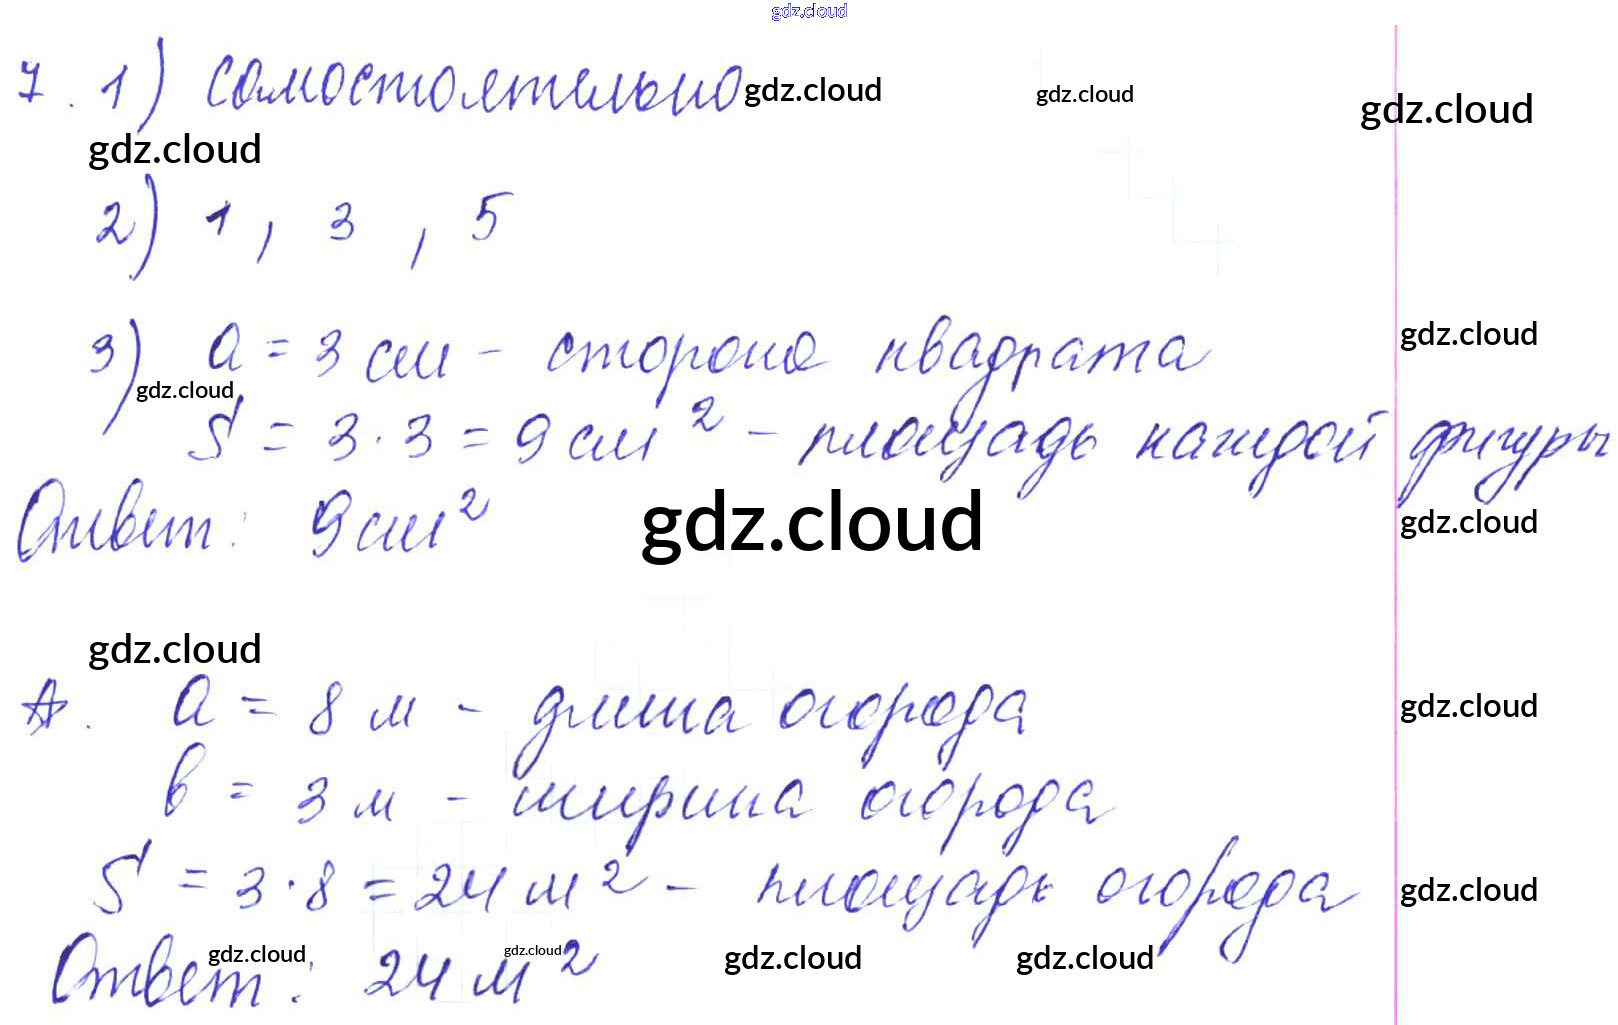 gdz.cloud
7. 1) самостоятельно gdz.cloud gdz.cloud gdz.cloud
gdz.cloud
2) 1, 3, 5
3) a = 3 см - сторона квадрата gdz.cloud
gdz.cloud
S = 3 · 3 = 9 см² - площадь каждой фигуры
Ответ: 9 см² gdz.cloud gdz.cloud
gdz.cloud
a = 8 м - длина огорода gdz.cloud
в = 3 м - ширина огорода
S = 3 · 8 = 24 м² - площадь огорода gdz.cloud
gdz.cloud gdz.cloud gdz.cloud gdz.cloud
Ответ: 24 м²